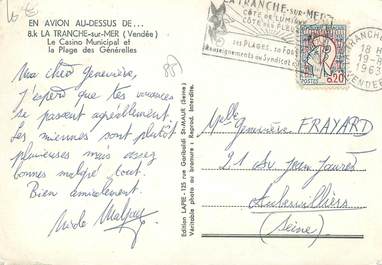 16€
EN AVION AU-DESSUS DE...
8.k LA TRANCHE-sur-MER (Vendée)
Le Casino Municipal et
la Plage des Générelles
Ma chère Geneviève,
J'espère que tes vacances
se passent agréablement.
Les miennes sont plutôt
pluvieuses mais assez
bonnes malgré tout.
Bien amicalement.
Nicole
Edition LAPIE - 125 rue Garibaldi St-MAUR (Seine)
Véritable photo au bromure : Reprod. Interdite.
LA TRANCHE-SUR-MER
CÔTE DE LUMIÈRE
CÔTE DES FLEURS
SES PLAGES, SA FORÊT
Renseignements au Syndicat
TRANCHE
18 H
19-8
1963
VENDÉE
POSTES
0,20
Mlle Geneviève FRAYARD
21 av Jean Jaurès
Aubervilliers
(Seine)